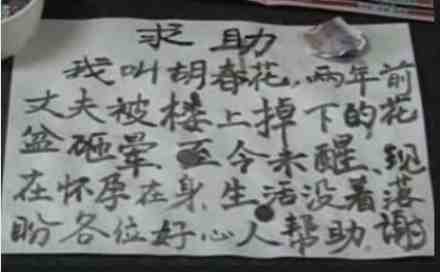 求助
我叫胡春花，两年前
丈夫被楼上掉下的花
盆砸晕 至今未醒、现
在怀孕在身、生活没着落
盼各位好心人帮助、谢